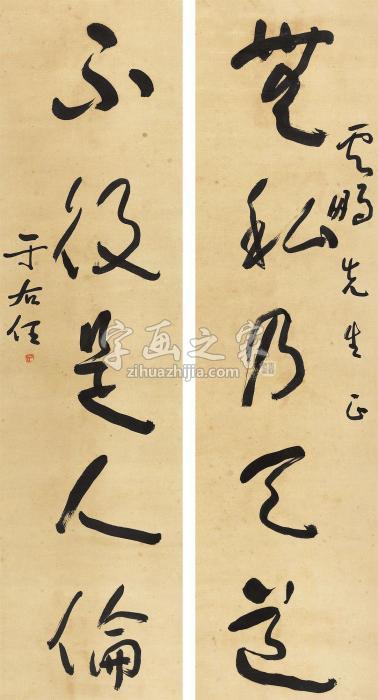 雲鵬先生正
無私乃天道
不役是人倫
于右任
字画之家
zihuazhijia.com